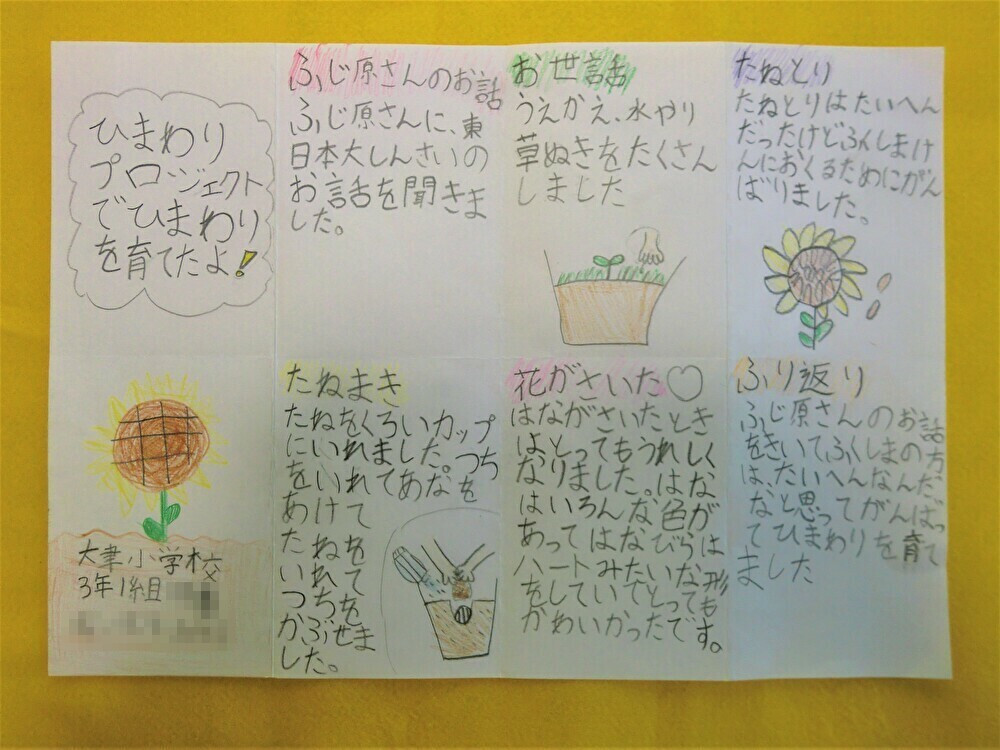 ひまわり
プロジェクト
でひまわり
を育てたよ!
大聿小学校
3年1組
ふじ原さんのお話
ふじ原さんに、東
日本大しんさいの
お話を聞きま
した。
たねまき
たねをくろいカップ
にいれました。つち
をいれてあなを
あけて
たねを
いれて
つちを
かぶせま
した。
お世話
うえかえ、水やり
草ぬきをたくさん
しました
花がさいた♡
はながさいたとき
はとってもうれしく
なりました。はな
はいろんな色が
あってはなびらは
ハートみたいな形
をしていてとっても
かわいかったです。
たねとり
たねとりはたいへん
だったけどふくしまけ
んにおくるためにがん
ばりました。
ふり返り
ふじ原さんのお話
をきいて、ふくしまの方
は、たいへんなんだ
なと思ってがんばっ
てひまわりを育て
ました